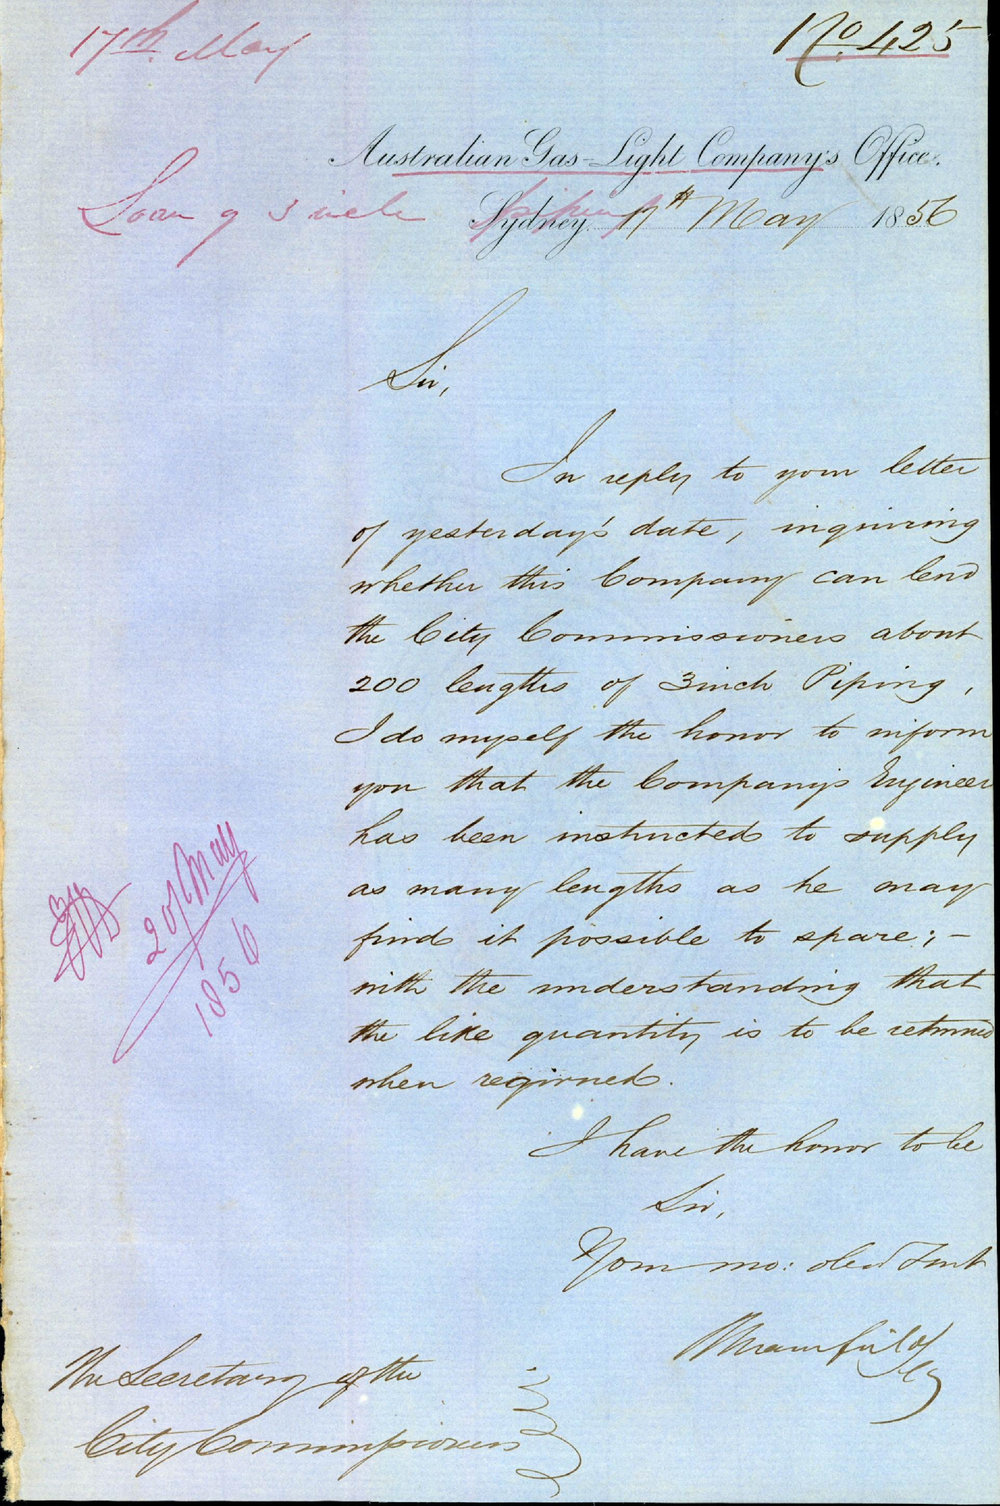 17th May
No. 425
Australian Gas-Light Company's Office.
Loan of 3 inch piping
Sydney 17th May 1856
Sir,
In reply to your letter
of yesterday's date, inquiring
whether this Company can lend
the City Commissioners about
200 lengths of 3inch Piping,
I do myself the honor to inform
you that the Company's Engineer
has been instructed to supply
as many lengths as he may
find it possible to spare; -
with the understanding that
the like quantity is to be returned
when required.
20/May
1856
I have the honor to be
Sir,
Your mo: obed Servt
Mansfield
Secy
The Secretary of the
City Commissioners